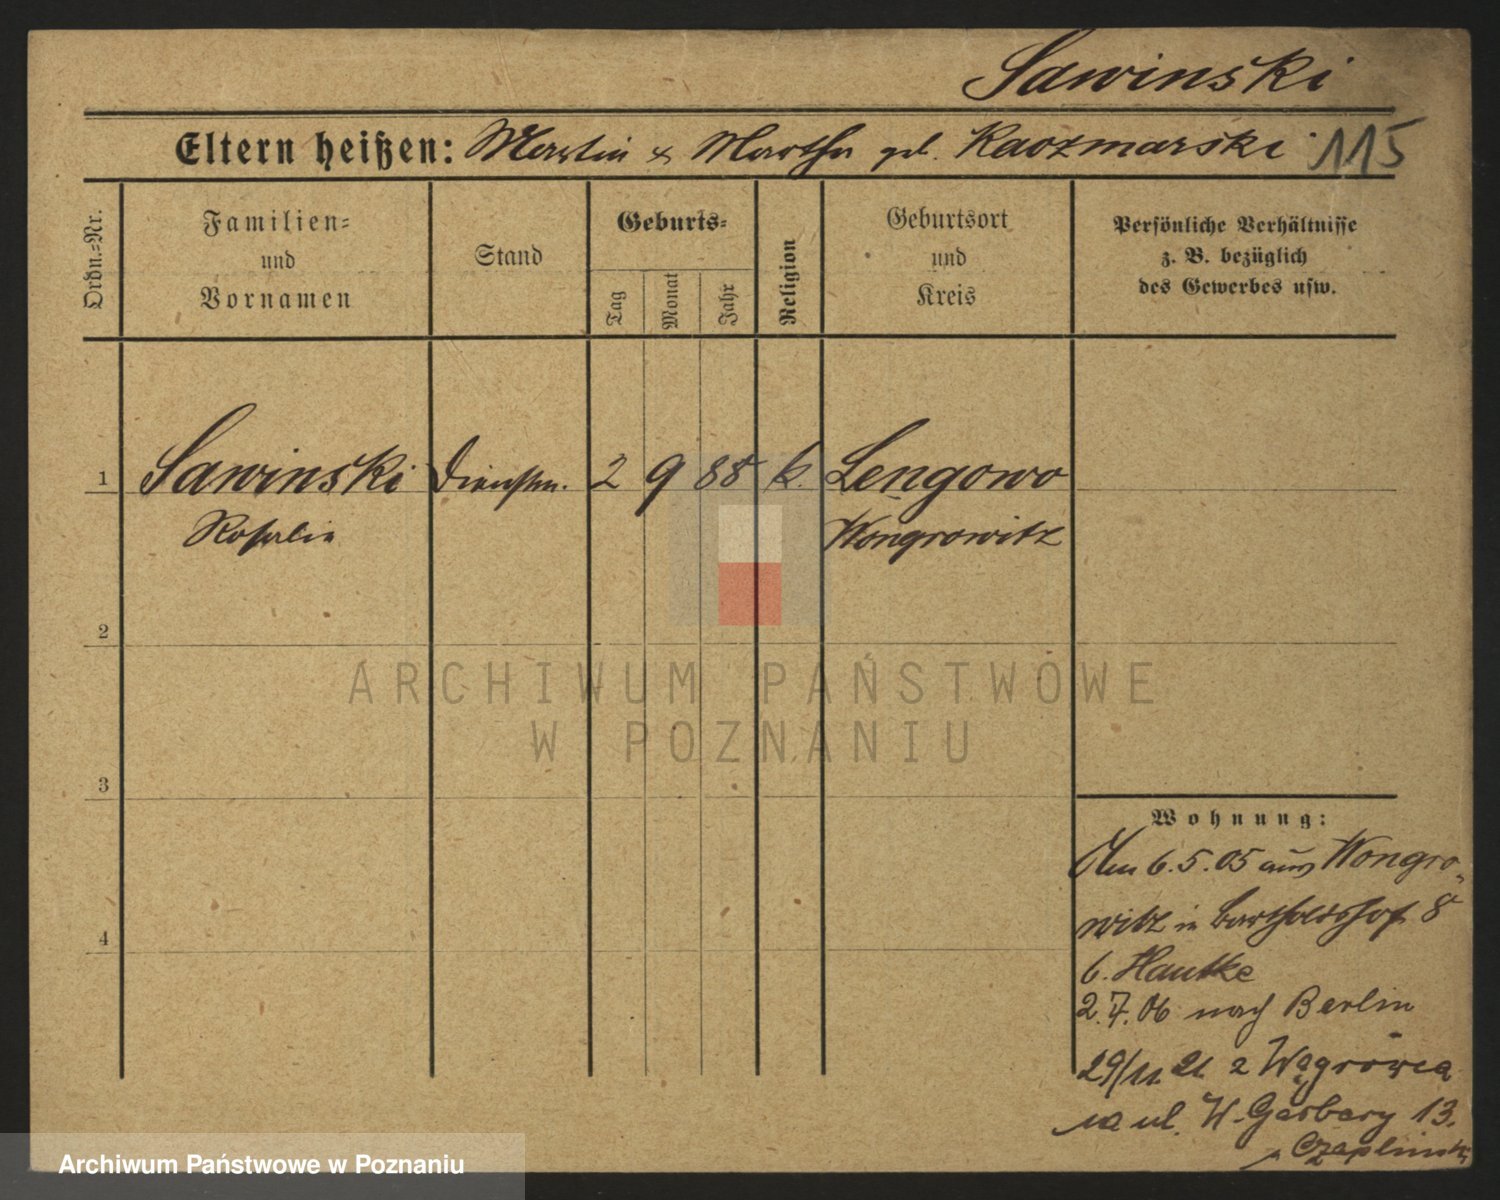 Sawinski
Eltern heißen: Martin & Martha geb. Kaczmarski 115
Ordn.-Nr.
Familien-
und
Vornamen
Stand
Geburts-
Tag
Monat
Jahr
Religion
Geburtsort
und
Kreis
Persönliche Verhältnisse
z. B. bezüglich
des Gewerbes usw.
1 Sawinski Dienstm. 2 9 88 k. Lengowo
Rosalie Wongrowitz
2
3
4
ARCHIWUM PAŃSTWOWE
W POZNANIU
Wohnung:
Am 6.5.05 aus Wongro-
witz in Bartholdshof 8
b. Hautke
2.7.06 nach Berlin
29/11 21 z Wągrówca
na ul. W. Garbary 13.
Czaplinski
Archiwum Państwowe w Poznaniu